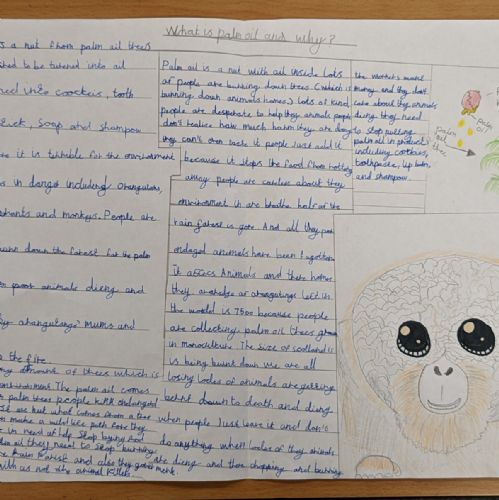 What is palm oil and why?
s a nut from palm oil trees
to be turened into oil
into coockies, tooth
Soap and shampoo
it is terrible for the environment
in danga including orangutans,
and monkeys. People are
down the forest for the palm
animals dieing and
orangutangs' mums and
the fire
amount of trees which is
The palm oil comes
palm trees people
but what comes from a tree
make a wild life path for they
in need of help Stop buying food
they need to Stop burning
Rain Forest and also they
with us not the animal killers
Palm oil is a nut with oil inside lots
of people are burning down trees (which is
burning down animals homes) lots of kind
people are desperate to help they animals people
don't realise how much harm they are doing
they can't even taste it people just add it
because it stops the food from rotting
people are careless about they
environment in are breathe half of the
rain forest is gone. And all they poor
endaged animals have been
It Animals and there homes
they of orangutangs left in
the world is 7500 because people
are collecting palm oil trees grown
in monoculture The size of scotland is
is being burnt down we are all
losing lodes of animals are getting
betent down to death and dieing
when people Just leave it and don't
do anything when lodes of they animals
are dieing and there chopping and burning
the workers want
money and they don't
care about they animals
dieing they need
to stop putting
palm oil in products
including cookies,
toothpaste, lip balm,
and shampoo.
palm
oil
palm
oil
tree